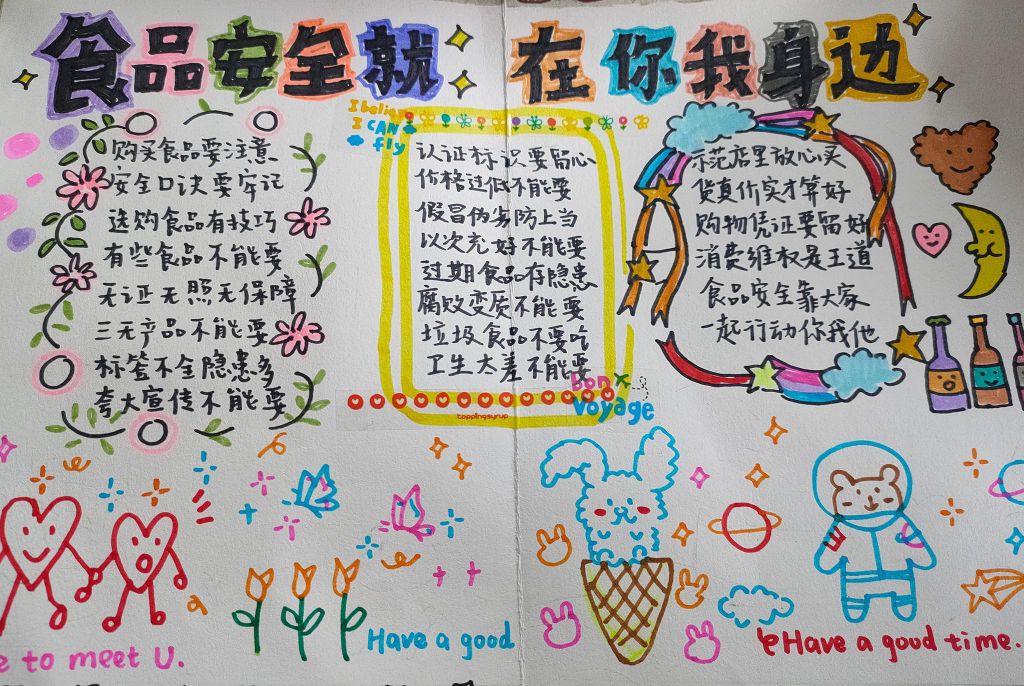 食品安全就在你我身边
购买食品要注意
安全口诀要牢记
选购食品有技巧
有些食品不能要
无证无照无保障
三无产品不能要
标签不全隐患多
夸大宣传不能要
I believe
I CAN
fly
认证标识要留心
价格过低不能要
假冒伪劣防上当
以次充好不能要
过期食品存隐患
腐败变质不能要
垃圾食品不要吃
卫生太差不能要
toppingsyrup
Bon
Voyage
示范店里放心买
货真价实才算好
购物凭证要留好
消费维权是王道
食品安全靠大家
一起行动你我他
e to meet U.
Have a good
Have a goud time.